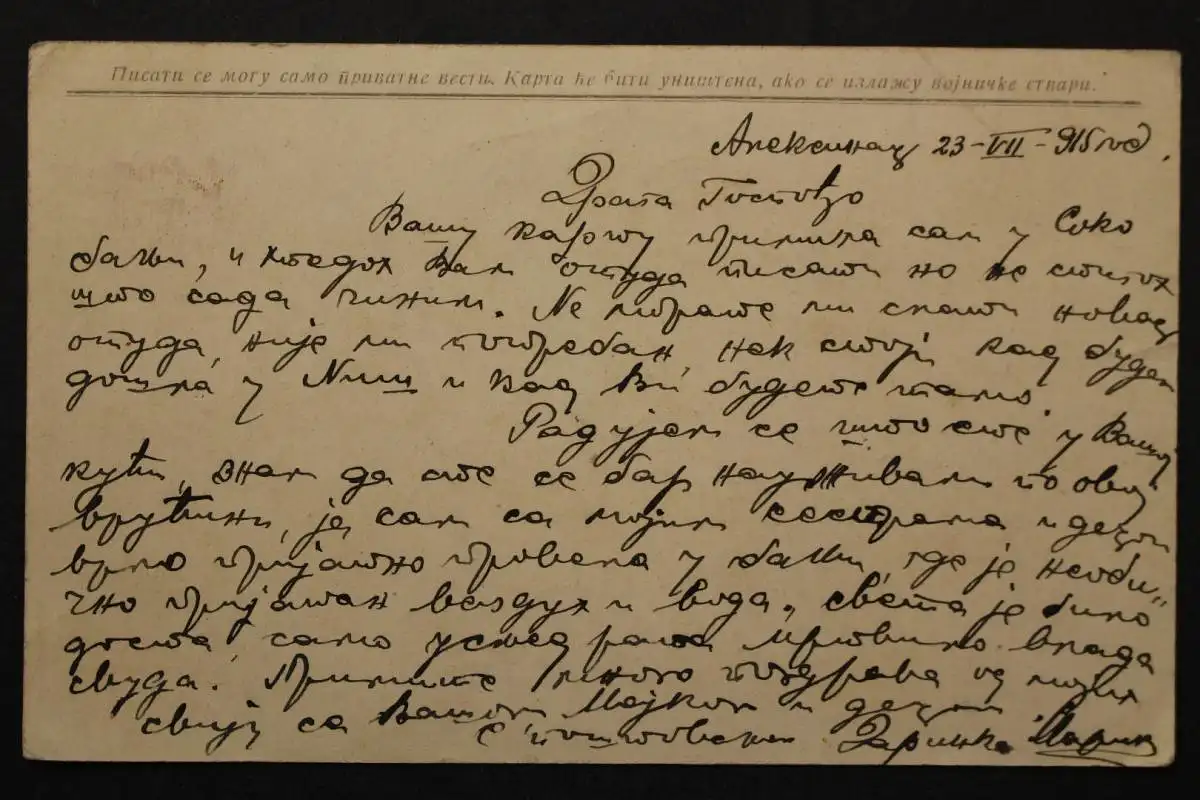 Писати се могу само приватне вести. Карта ће бити уништена, ако се излажу војничке ствари.
Алексинац 23-VII-915 год.
Драга Госпођо
Вашу карту примила сам у Соко
бањи, и хтедох Вам отуда писати но не стигох
што сада чиним. Не морате ми слати новац
отуда, није ми потребан, нек стоји кад будем
дошла у Ниш и кад Ви будете тамо.
Радујем се што сте у Вашој
кући, знам да сте се бар науживали по овој
врућини, ја сам са мојим сестрама и децом
врло пријатно провела у бањи, где је необи„
чно пријатан ваздух и вода, света је било
доста, само услед рата мртвило влада
свуда. Примите много поздрава од мојих
свију са Вашом Мајком и децом
с поштовањем Заринка